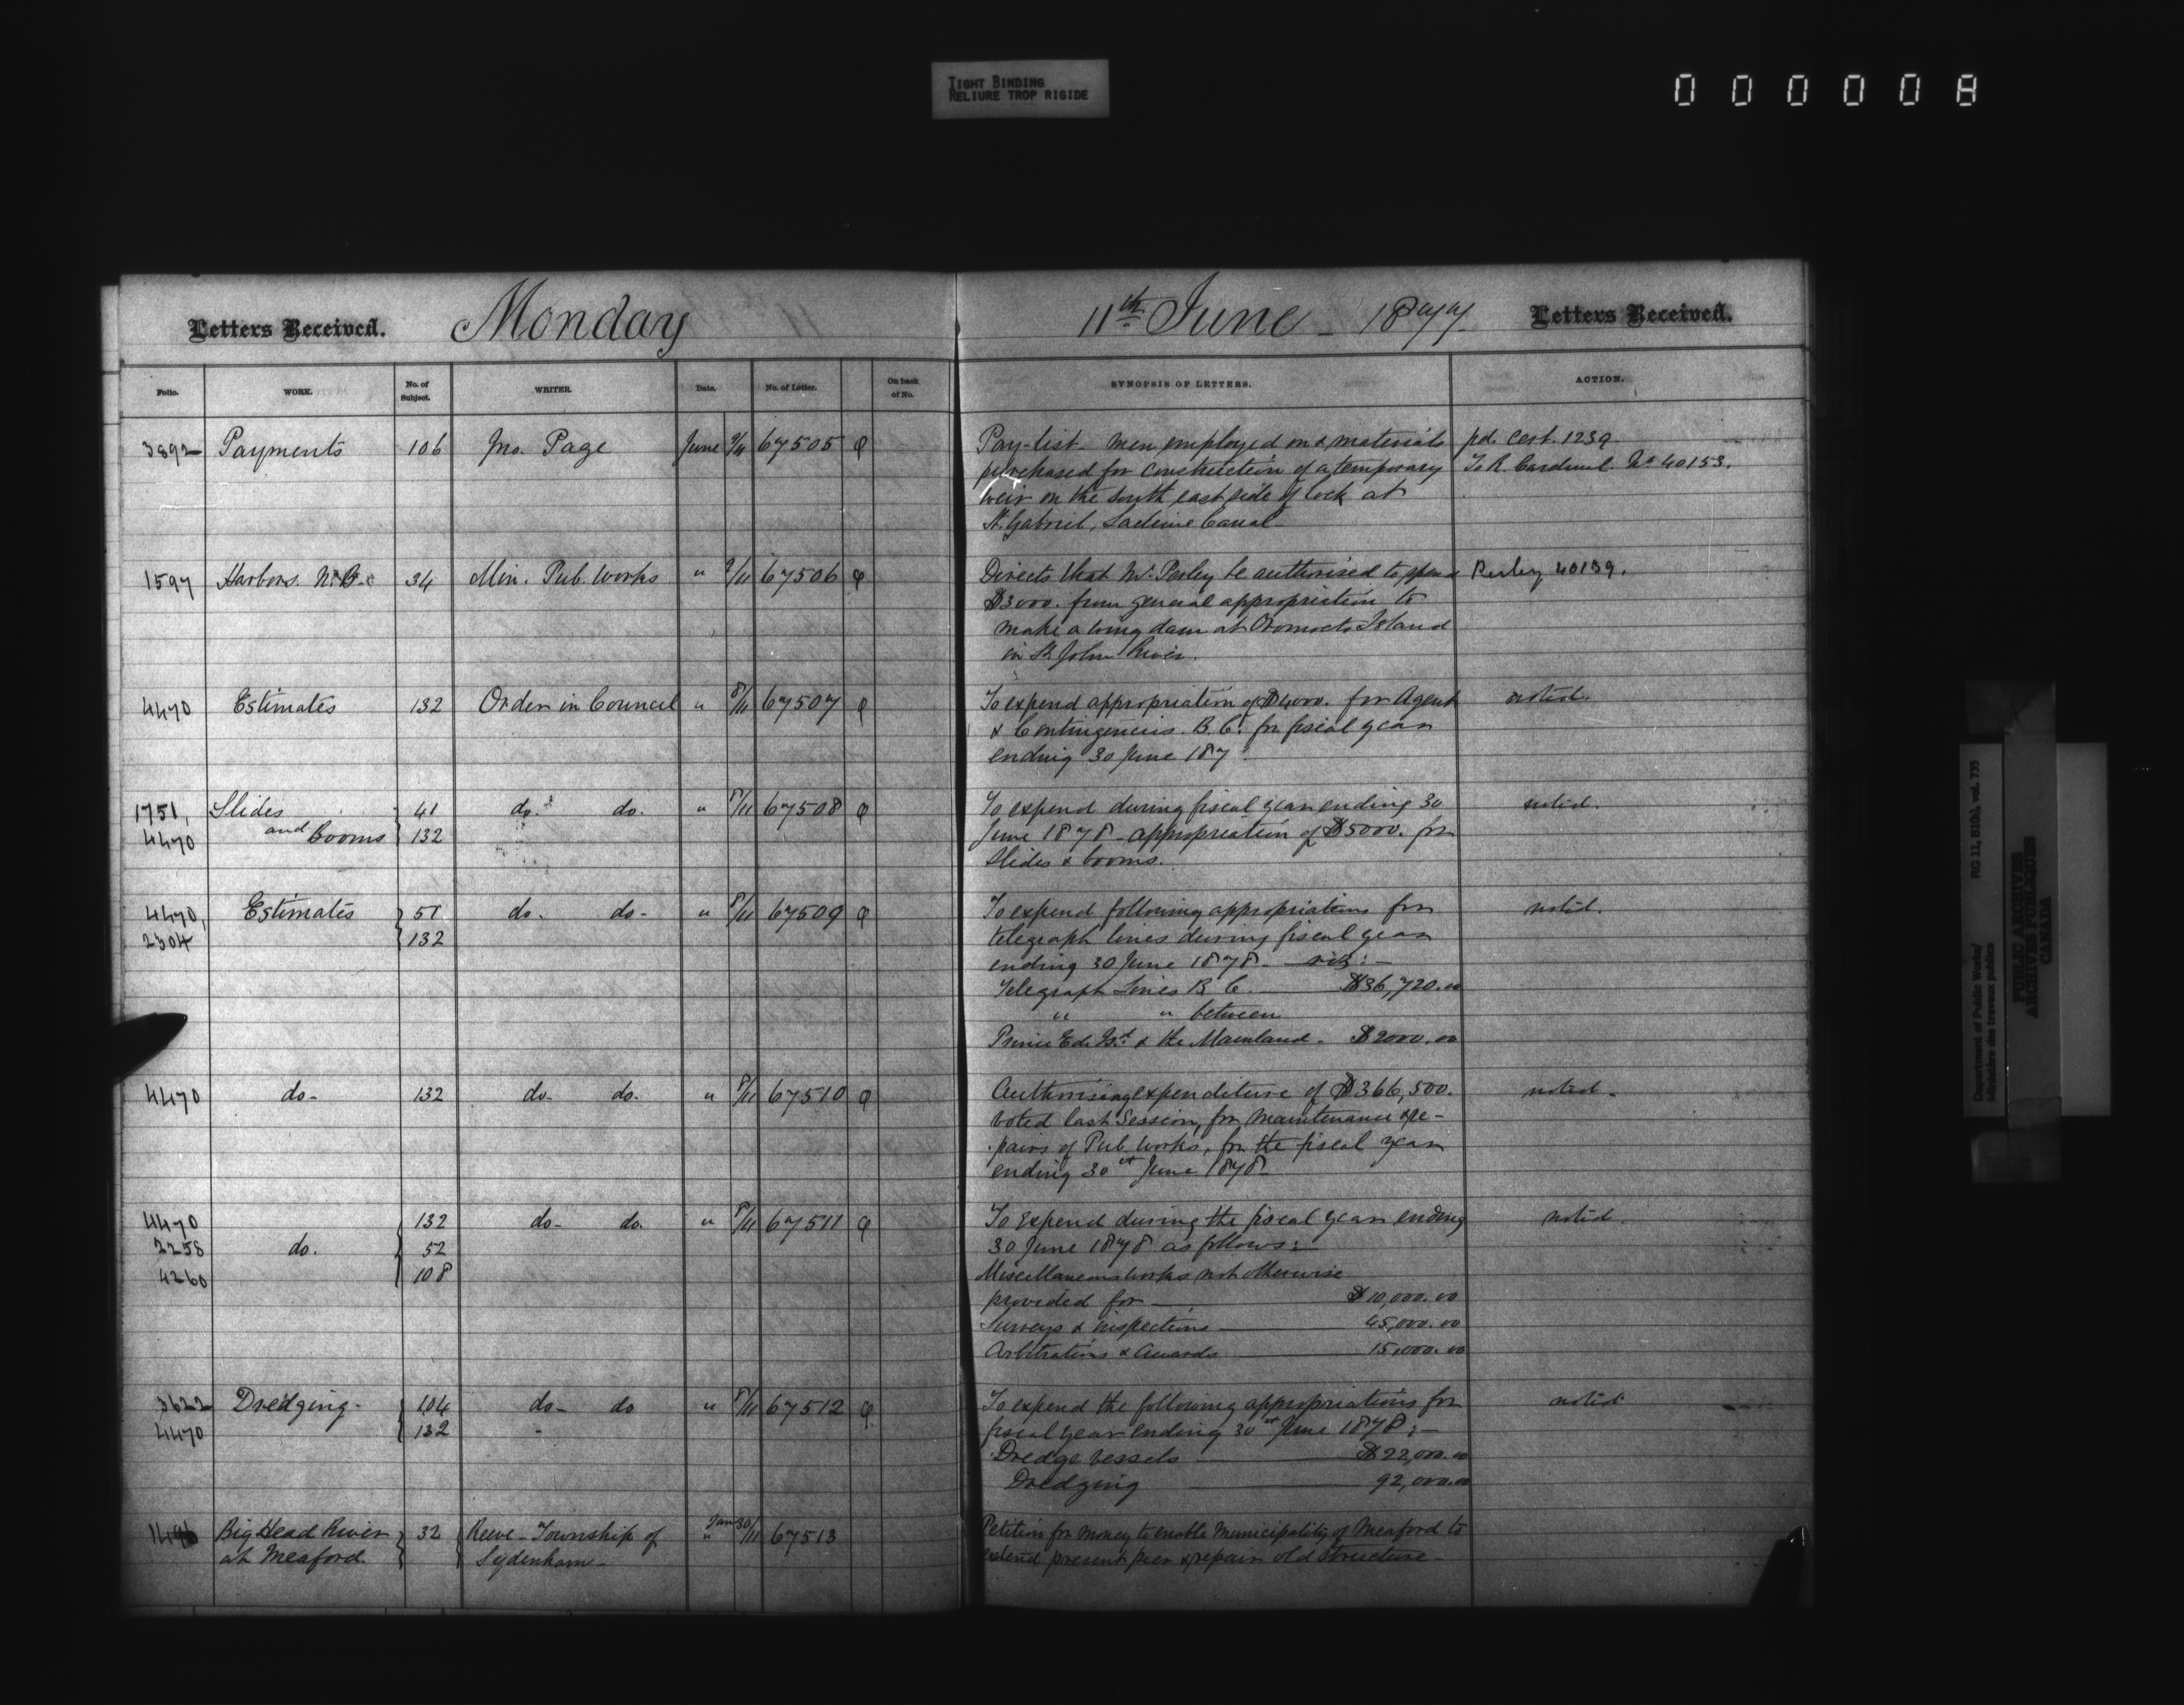 TIGHT BINDING
RELIURE TROP RIGIDE
000008
Letters Received. Monday 11th June - 1877. Letters Received.
Folio. WORK. No. of Subject. WRITER. Date. No. of Letter. On back of No. SYNOPSIS OF LETTERS. ACTION.
3892 Payments 106 Jno. Page June 9/11 67505 φ Pay-list - men employed on & materials pd. Cert. 1239.
purchased for construction of a temporary To R. Cardinal. No 40153.
weir on the South east side of lock at
St. Gabriel, Lachine Canal -
1597 Harbors. N.B. 34 Min. Pub. Works " 9/11 67506 φ Directs that Mr. Perley be authorised to spend Perley 40139.
$3000. from general appropriation to
make a wing dam at Oromocto Island
in St John River.
4470 Estimates 132 Order in Council " 8/11 67507 φ To expend appropriation of $4000. for Agent noted.
& Contingencies. B.C. for fiscal year
ending 30 June 187
1751, Slides 41 do. do. " 8/11 67508 φ To expend during fiscal year ending 30 noted.
4470 and Booms 132 June 1878 - appropriation of $5000. for
Slides & booms.
4470, Estimates 51 do. do - " 8/11 67509 φ To expend following appropriations for noted.
2304 132 telegraph lines during fiscal year
ending 30 June 1878 - viz: -
Telegraph Lines B.C. $36,720.00
" " between
Prince Ed. Isd. & the Mainland - $2000.00
4470 do - 132 do - do. " 8/11 67510 φ Authorising expenditure of $366,500. noted -
voted last Session, for maintenance & re-
pairs of Pub. Works, for the fiscal year
ending 30 June 1878 -
4470 132 do - do. " 8/11 67511 φ To expend during the fiscal year ending noted.
2258 do. 52 30 June 1878 as follows: -
4260 108 Miscellaneous works not otherwise
provided for $10,000.00
Surveys & inspections 45,000.00
Arbitrations & Awards 15,000.00
3622 Dredging - 104 do - do " 8/11 67512 φ To expend the following appropriations for noted
4470 132 fiscal year ending 30 June 1878: -
Dredge vessels $22,000.00
Dredging 92,000.00
Big Head River 32 Reeve - Township of Jan 30/11 67513 Petition for money to enable Municipality of Meaford to
at Meaford. Sydenham - extend present pier & repair old structure -
Department of Public Works/ RG 11, B1(b), vol. 735
Ministère des travaux publics
PUBLIC ARCHIVES
ARCHIVES PUBLIQUES
CANADA